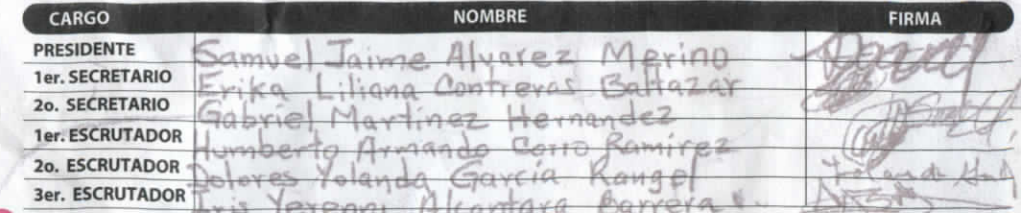 CARGO NOMBRE FIRMA
PRESIDENTE Samuel Jaime Alvarez Merino
1er. SECRETARIO Erika Liliana Contreras Baltazar
2o. SECRETARIO Gabriel Martinez Hernandez
1er. ESCRUTADOR Humberto Armando Corro Ramirez
2o. ESCRUTADOR Dolores Yolanda García Rangel
3er. ESCRUTADOR Iris Alcantara Barrera